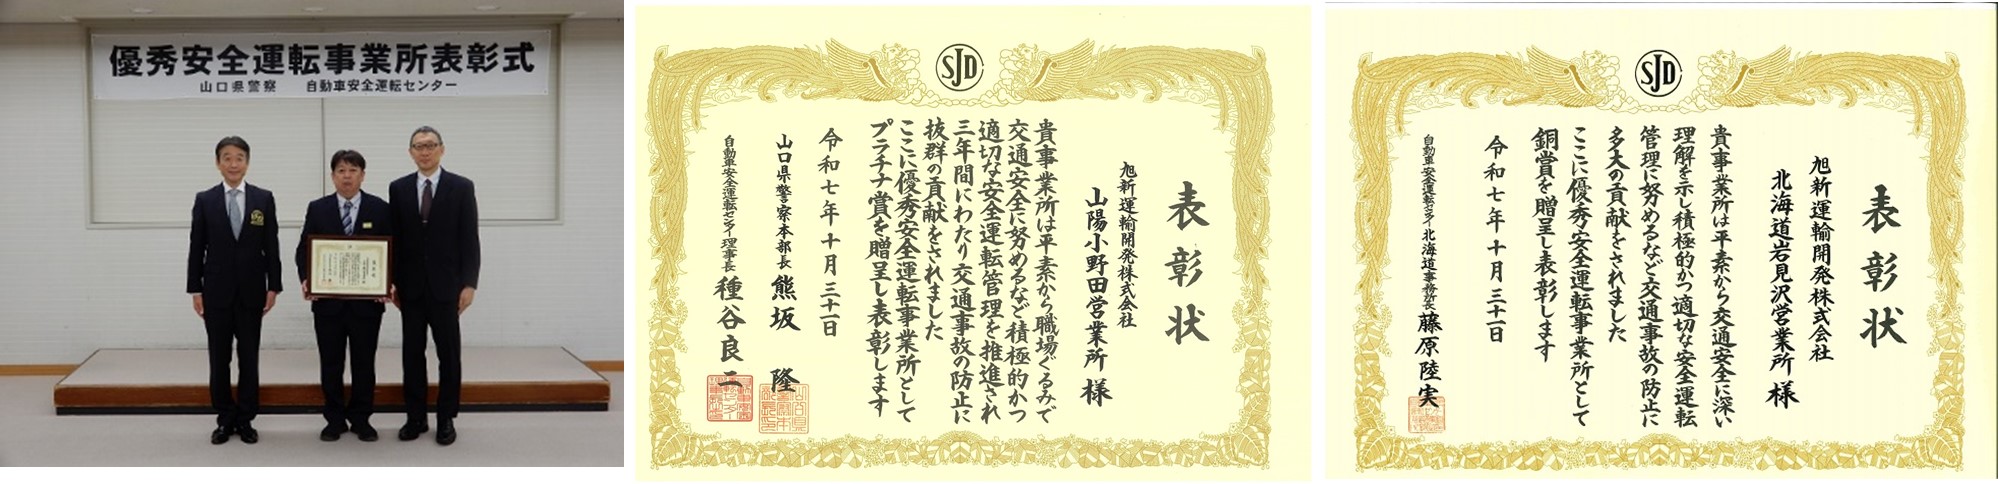 優秀安全運転事業所表彰式
山口県警察　自動車安全運転センター
SJD
表彰状
旭新運輸開発株式会社
山陽小野田営業所 様
貴事業所は平素から職場ぐるみで
交通安全に努めるなど積極的かつ
適切な安全運転管理を推進され
三年間にわたり交通事故の防止に
抜群の貢献をされました
ここに優秀安全運転事業所として
プラチナ賞を贈呈し表彰します
令和七年十月三十一日
山口県警察本部長 熊坂 隆
自動車安全運転センター理事長 種谷良二
SJD
表彰状
旭新運輸開発株式会社
北海道岩見沢営業所 様
貴事業所は平素から交通安全に深い
理解を示し積極的かつ適切な安全運転
管理に努めるなど交通事故の防止に
多大の貢献をされました
ここに優秀安全運転事業所として
銅賞を贈呈し表彰します
令和七年十月三十一日
自動車安全運転センター北海道事務所長 藤原陸実